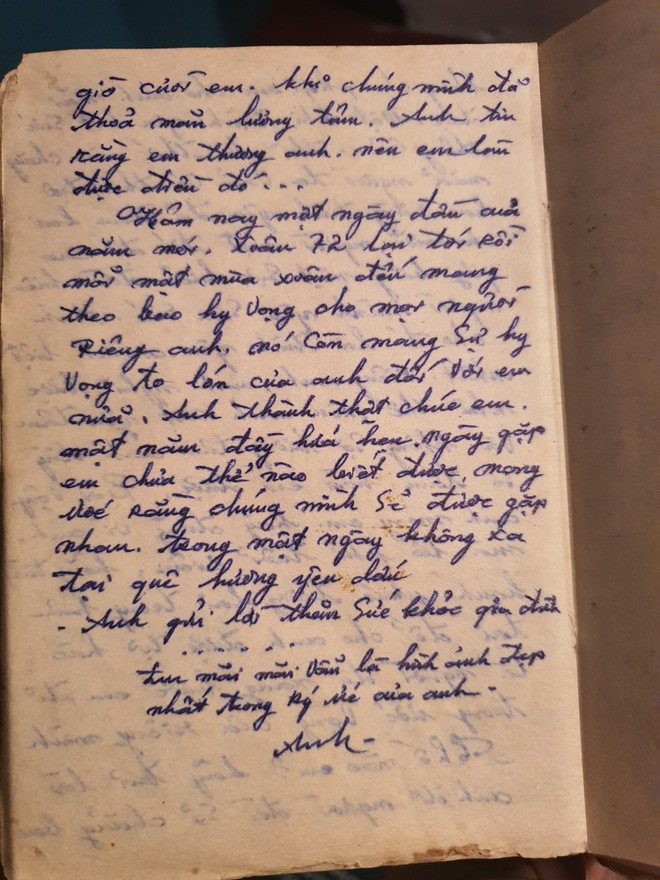 giờ cười em. khi chúng mình đã
thoả mãn lương tâm. Anh tin
rằng em thương anh. nên em làm
được điều đó...
Hôm nay một ngày đầu của
năm mới. Xuân 72 lại tới rồi
mỗi một mùa xuân đến mang
theo bao hy vọng cho mọi người
Riêng anh. nó còn mang sự hy
vọng to lớn của anh đối với em
nữa. Anh thành thật chúc em.
một năm đầy hứa hẹn. ngày gặp
em chưa thể nào biết được, mong
ước rằng chúng mình sẽ được gặp
nhau. trong một ngày không xa
tại quê hương yêu dấu
- Anh gửi lời thăm sức khỏe gia đình
. . . . . .
mãi mãi vẫn là hình ảnh đẹp
nhất trong ký ức của anh -
Anh -